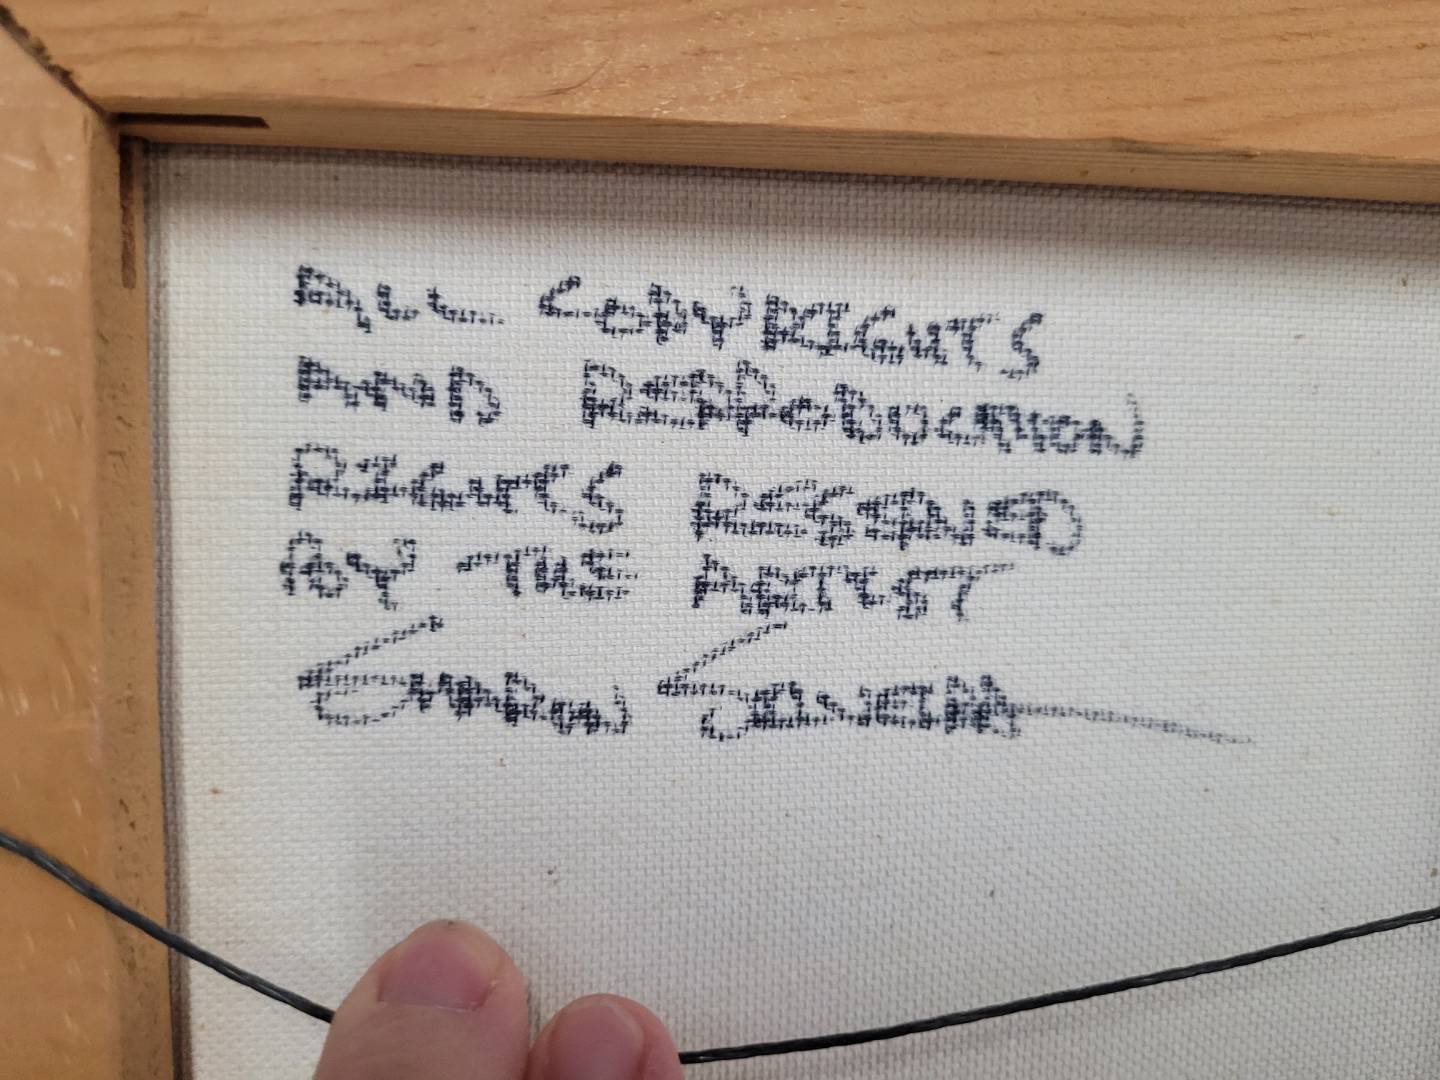 ALL COPYRIGHTS
AND REPRODUCTION
RIGHTS RESERVED
BY THE ARTIST